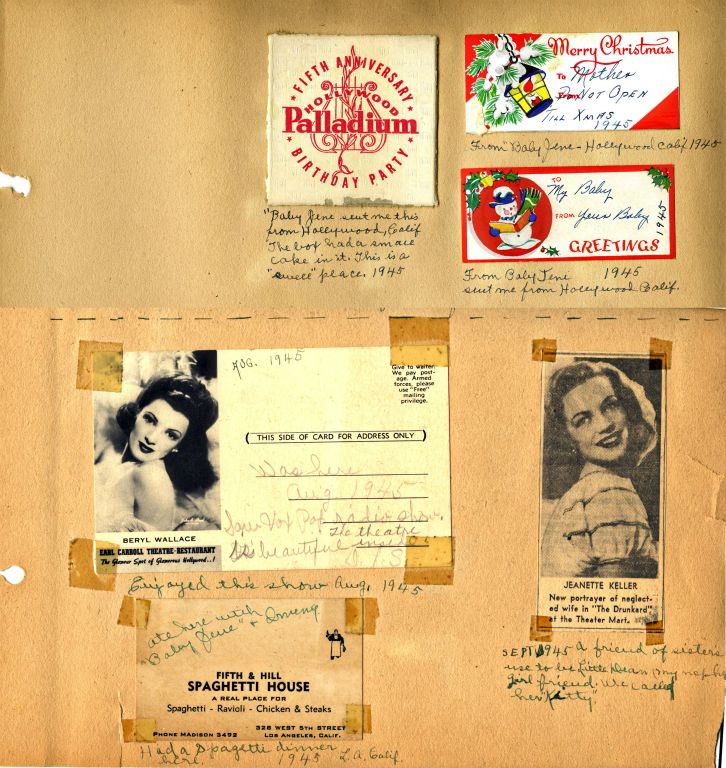 FIFTH ANNIVERSARY
HOLLYWOOD
Palladium
BIRTHDAY PARTY
"Baby Jene sent me this
from Hollywood, Calif
The box had a small
cake in it. This is a
"swell" place. 1945
Merry Christmas
To Mother
From Do NOT OPEN
TILL XMAS
1945
From "Baby Jene - Hollywood Calif." 1945
TO My Baby
FROM Your Baby
1945
GREETINGS
From Baby Jene 1945
sent me from Hollywood Calif.
AUG. 1945
Give to waiter.
We pay post-
age. Armed
forces, please
use "Free"
mailing
privilege.
THIS SIDE OF CARD FOR ADDRESS ONLY
Was here
Aug 1945
Vox Pop radio show.
The theatre
is beautiful inside
BERYL WALLACE
EARL CARROLL THEATRE-RESTAURANT
The Glamour Spot of Glamorous Hollywood..!
Enjoyed this show Aug. 1945
ate here with
"Baby Jene" &
FIFTH & HILL
SPAGHETTI HOUSE
A REAL PLACE FOR
Spaghetti - Ravioli - Chicken & Steaks
328 WEST 5TH STREET
PHONE MADISON 3492 LOS ANGELES, CALIF.
Had a spagetti dinner
here. 1945 L.A. Calif.
JEANETTE KELLER
New portrayer of neglect-
ed wife in "The Drunkard"
at the Theater Mart.
SEPT 1945 A friend of sister's
use to be Little Dean my neph
girl friend. We called
her